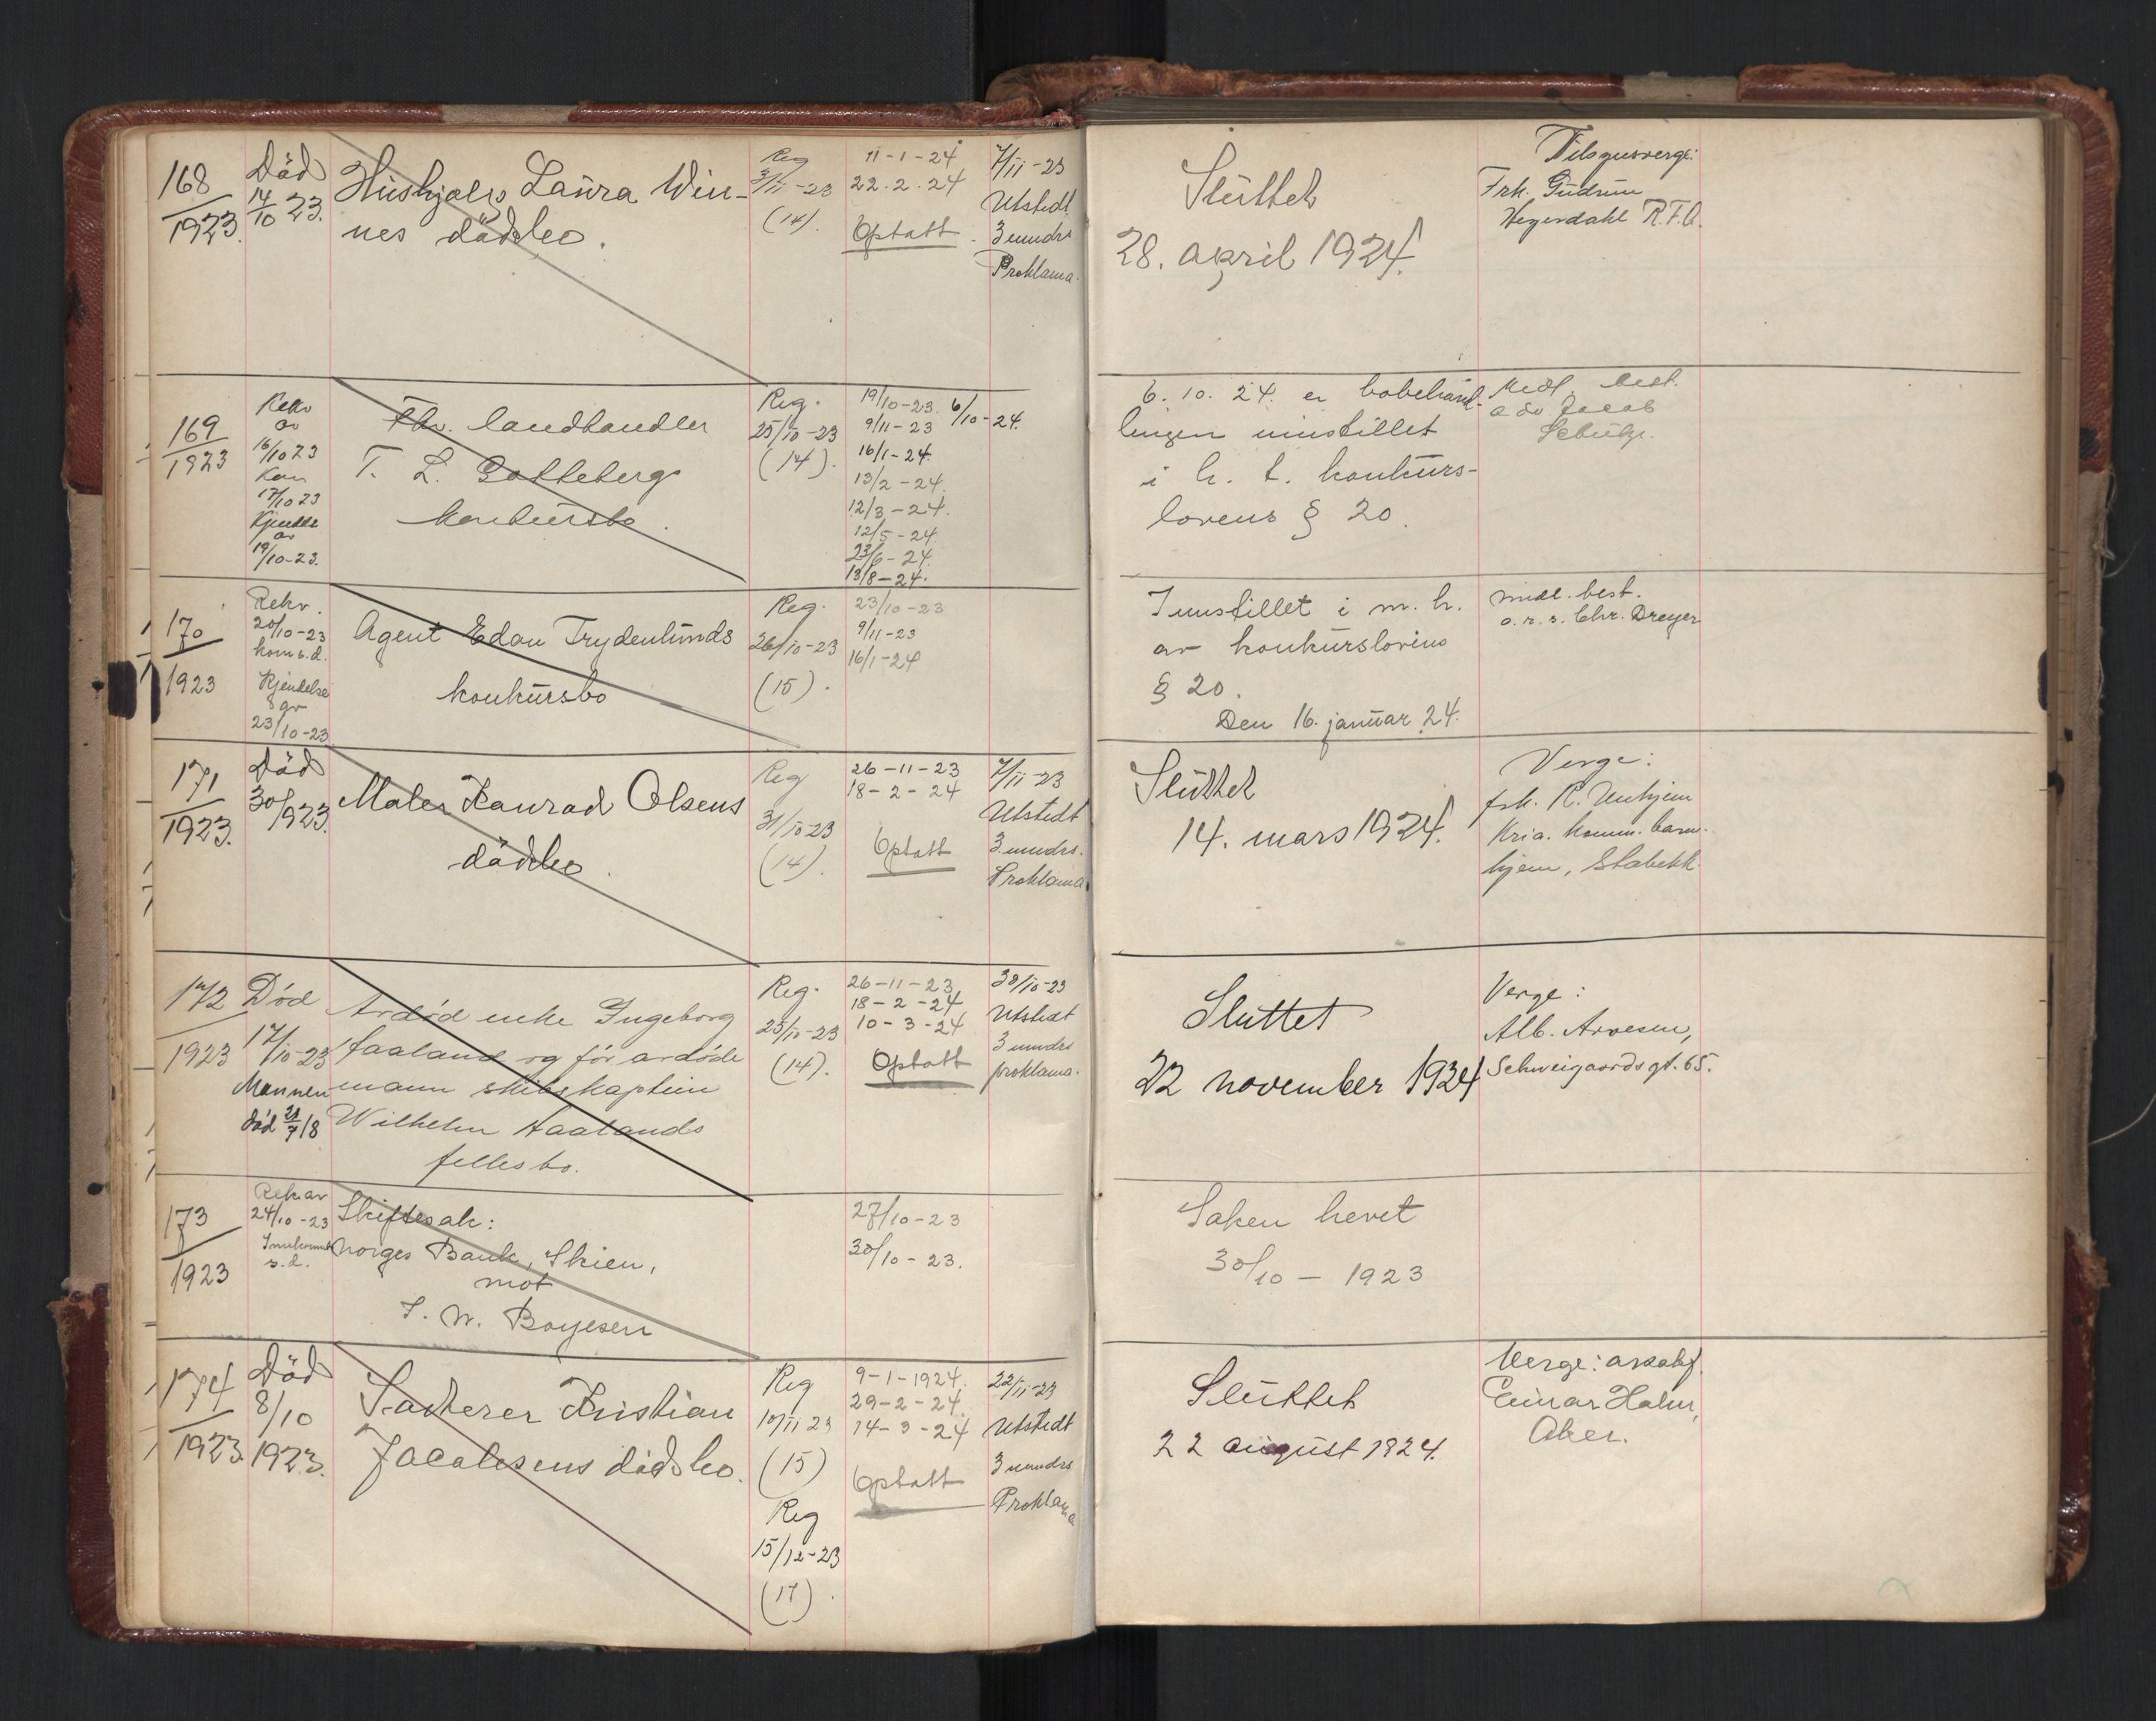 168
1923.
Död
14/10 23.
Hushjelp Laura Win-
nes dödsbo.
Reg
3/11-23
(14).
11-1-24
22.2.24
Optatt.
7/11-23
Utstedt
3 mndrs
Proklama.
Sluttet
28. april 1924.
Tilsynsverge:
Frk. Gudrun
Hegerdahl R.F.A.
169
1923
Rekv
av
16/10 23
Kom
17/10 23
Kjendelse
av
19/10-23.
Fhv. landhandler
T. L. Solleberg
konkursbo.
Reg.
25/10-23
(14).
19/10-23.
9/11-23
16/1-24.
13/2-24.
12/3-24.
12/5-24.
23/6-24.
13/8-24.
6/10-24.
6.10.24. er bobehand-
lingen innstillet
i h. t. konkurs-
lovens § 20.
Midl. best.
Jacob
170
1923
Rekv.
20/10-23
kom s.d.
Kjendelse
av
23/10-23
Agent Edau Frydenlunds
konkursbo
Reg.
26/10-23
(15).
23/10-23
9/11-23
16/1-24
Innstillet i m. h.
av konkurslovens
§ 20.
Den 16. januar 24.
midl. best.
o. r. s. Chr. Dreyer
171
1923.
Död
30/9 23.
Maler Konrad Olsens
dödsbo.
Reg
31/10-23
(14).
26-11-23
18-2-24
Optatt
7/11-23
Utstedt
3 mndrs.
Proklama
Sluttet
14. mars 1924.
Verge:
frk. R. Unhjem
Kria. komm. barne-
hjem, Stabekk
172
1923
Död
17/10-23
Mannen
död 21/7 18
Avdöd enke Ingeborg
Aaland og för avdöde
mann skibskaptein
Wilhelm Aalands
fellesbo.
Reg.
25/10-23
(14).
26-11-23
18-2-24
10-3-24
Optatt
30/10-23
Utstedt
3 mndrs
proklama.
Sluttet
22 november 1924
Verge:
Alb. Arvesen,
Schweigaardsgt. 65.
173
1923
Rek av
24/10-23
Innkommet
s.d.
Skiftesak:
Norges Bank, Skien,
mot
S. W. Boyesen
27/10-23
30/10-23.
Saken hevet
30/10 - 1923
174
1923.
Död
8/10
1923.
Sakfører Kristian
Jacobsens dödsbo.
Reg
10/11 23
(15)
Reg
15/12-23
(17).
9-1-1924.
29-2-24.
14-3-24
Optatt
22/11-23
Utstedt
3 mndrs
Proklama
Sluttet
22 august 1924.
Verge:
Einar Holm,
Aker.